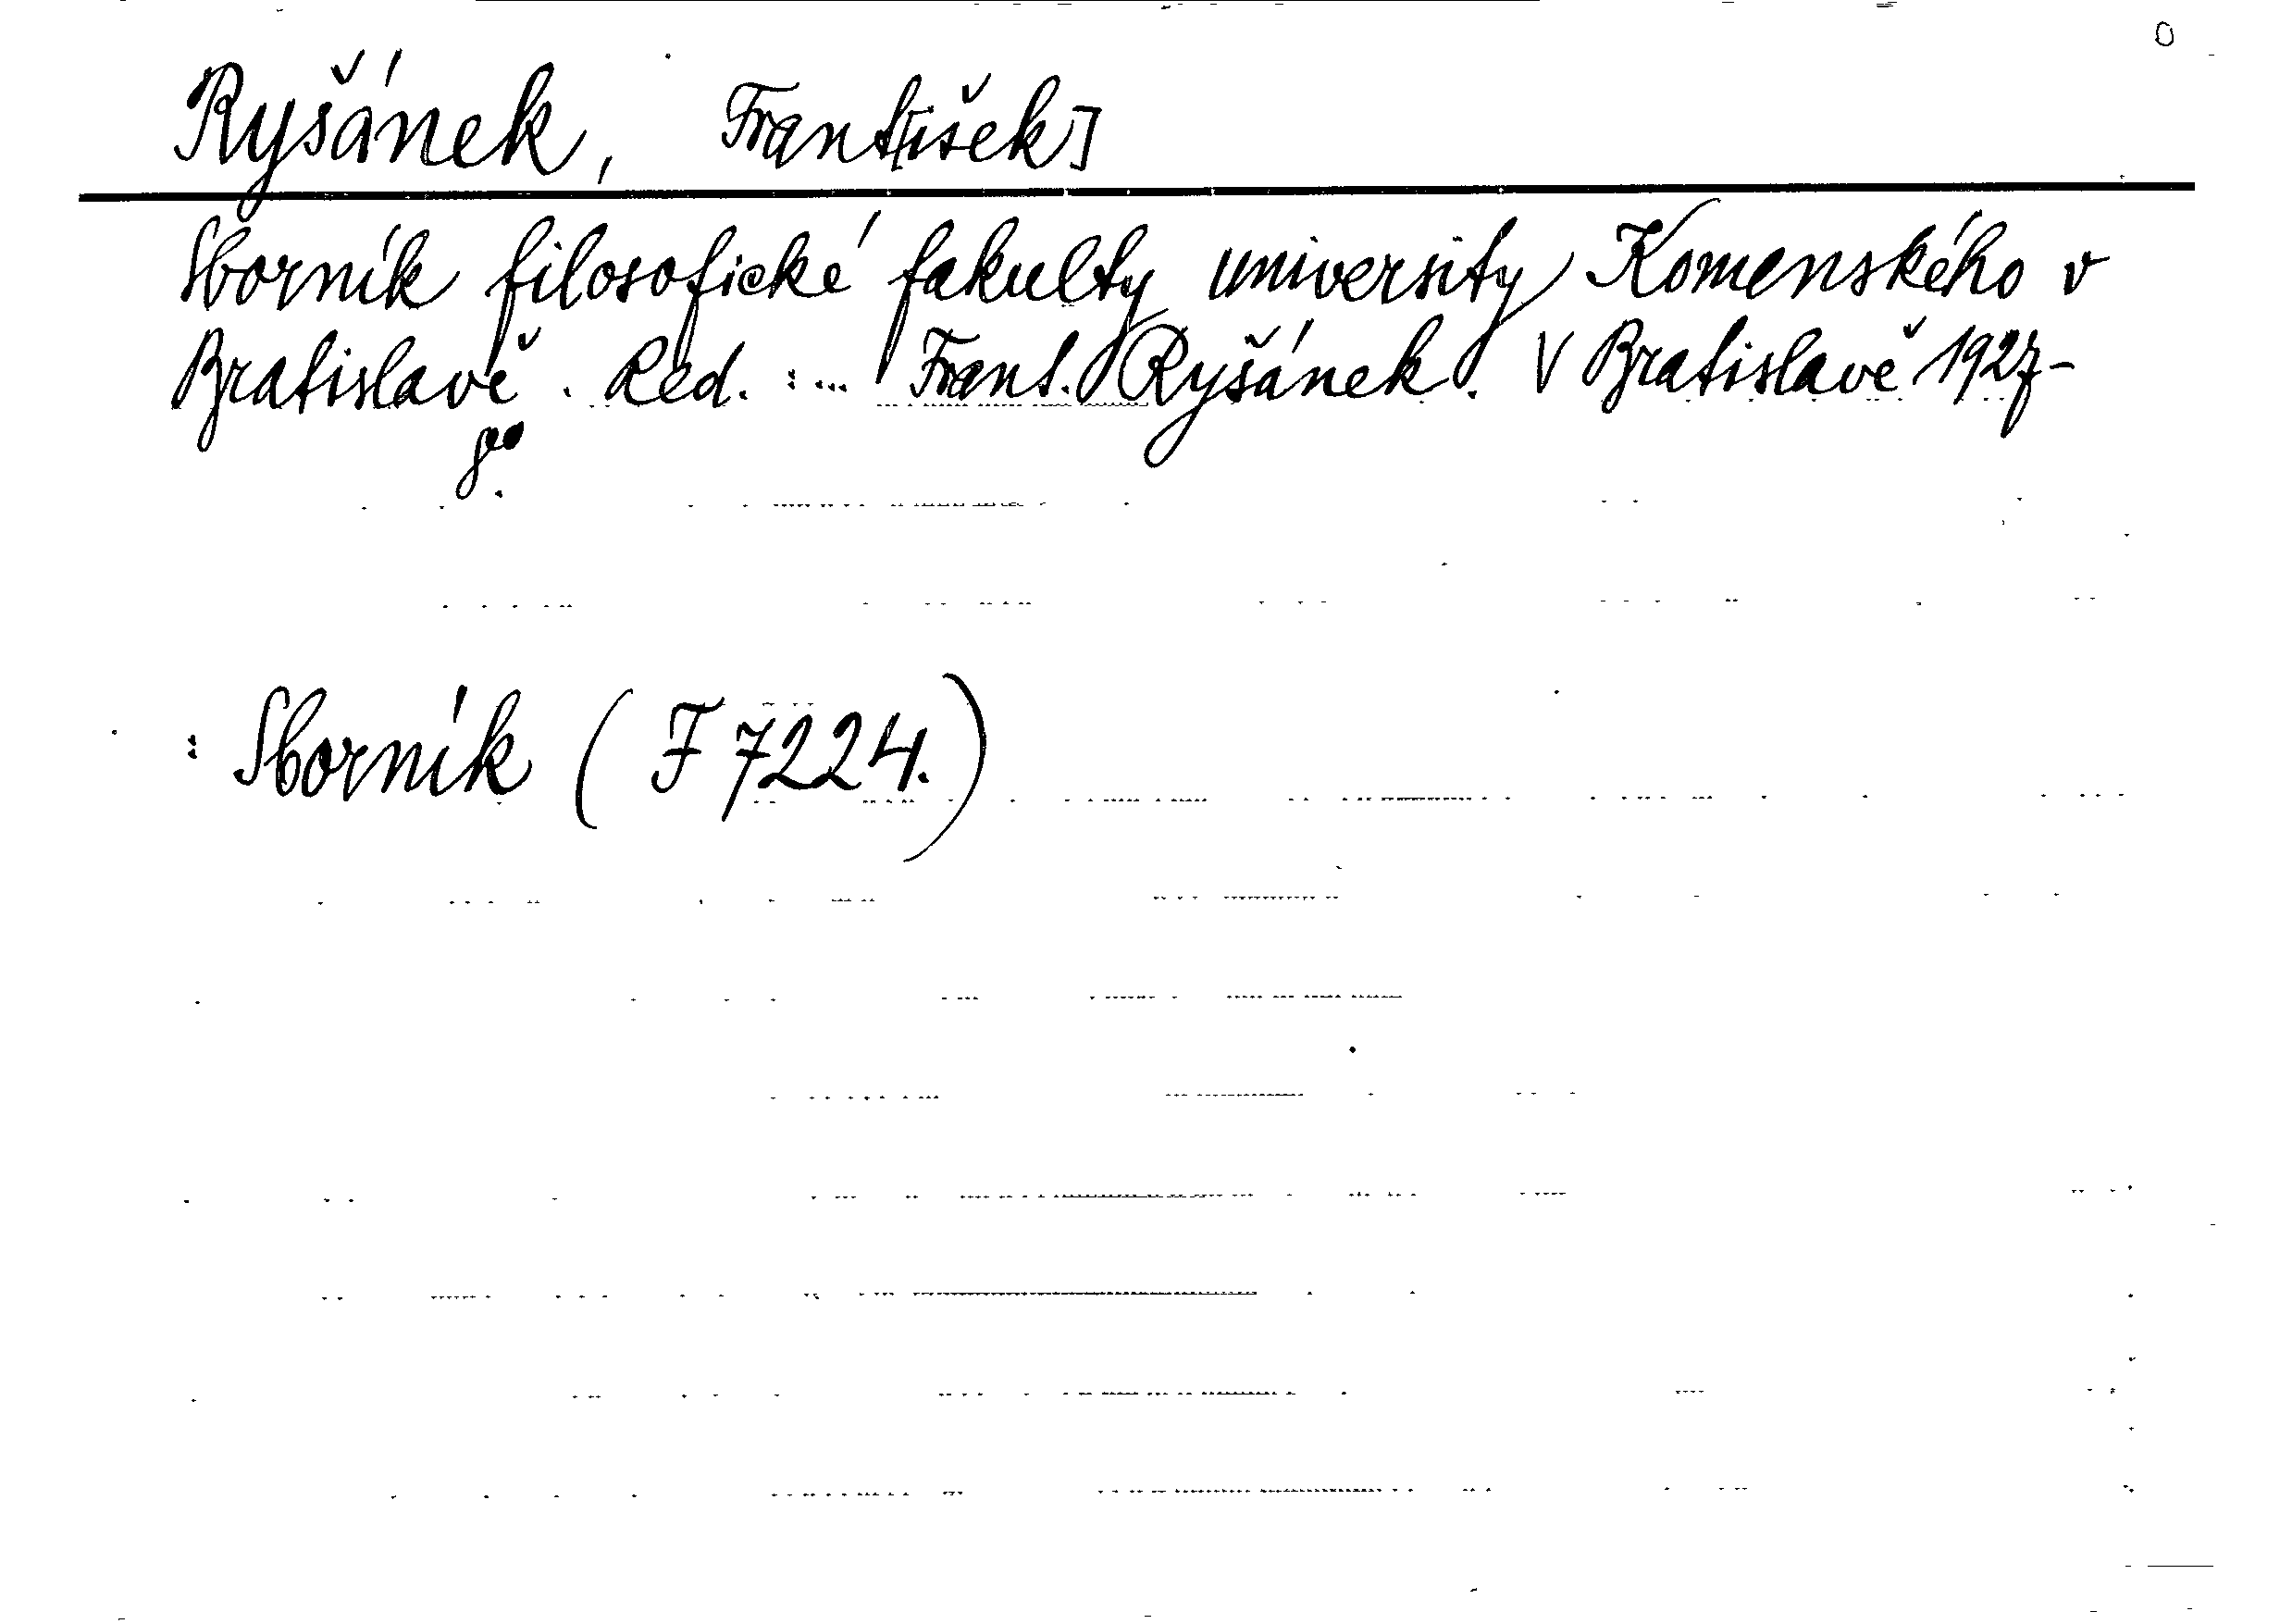 O
Ryšánek, Frant[išek]
Sborník filosofické fakulty university Komenského v
Bratislavě. Red. : ... Frant. Ryšánek. V Bratislavě 1927-
8°.
: Sborník (F 7224.)